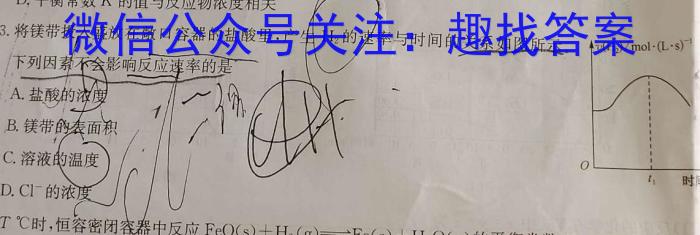 D. 平衡常数K的值与反应物浓度相关
3. 将镁带投入盛放在敞口容器的盐酸里,产生H₂的速率与时间的关系如图所示
微信公众号关注:趣找答案
mol·(L·s)⁻¹
下列因素不会影响反应速率的是
A. 盐酸的浓度
B. 镁带的表面积
C. 溶液的温度
D. Cl⁻的浓度
O t₁ 时
T ℃时,恒容密闭容器中反应FeO(s)+H₂(g)